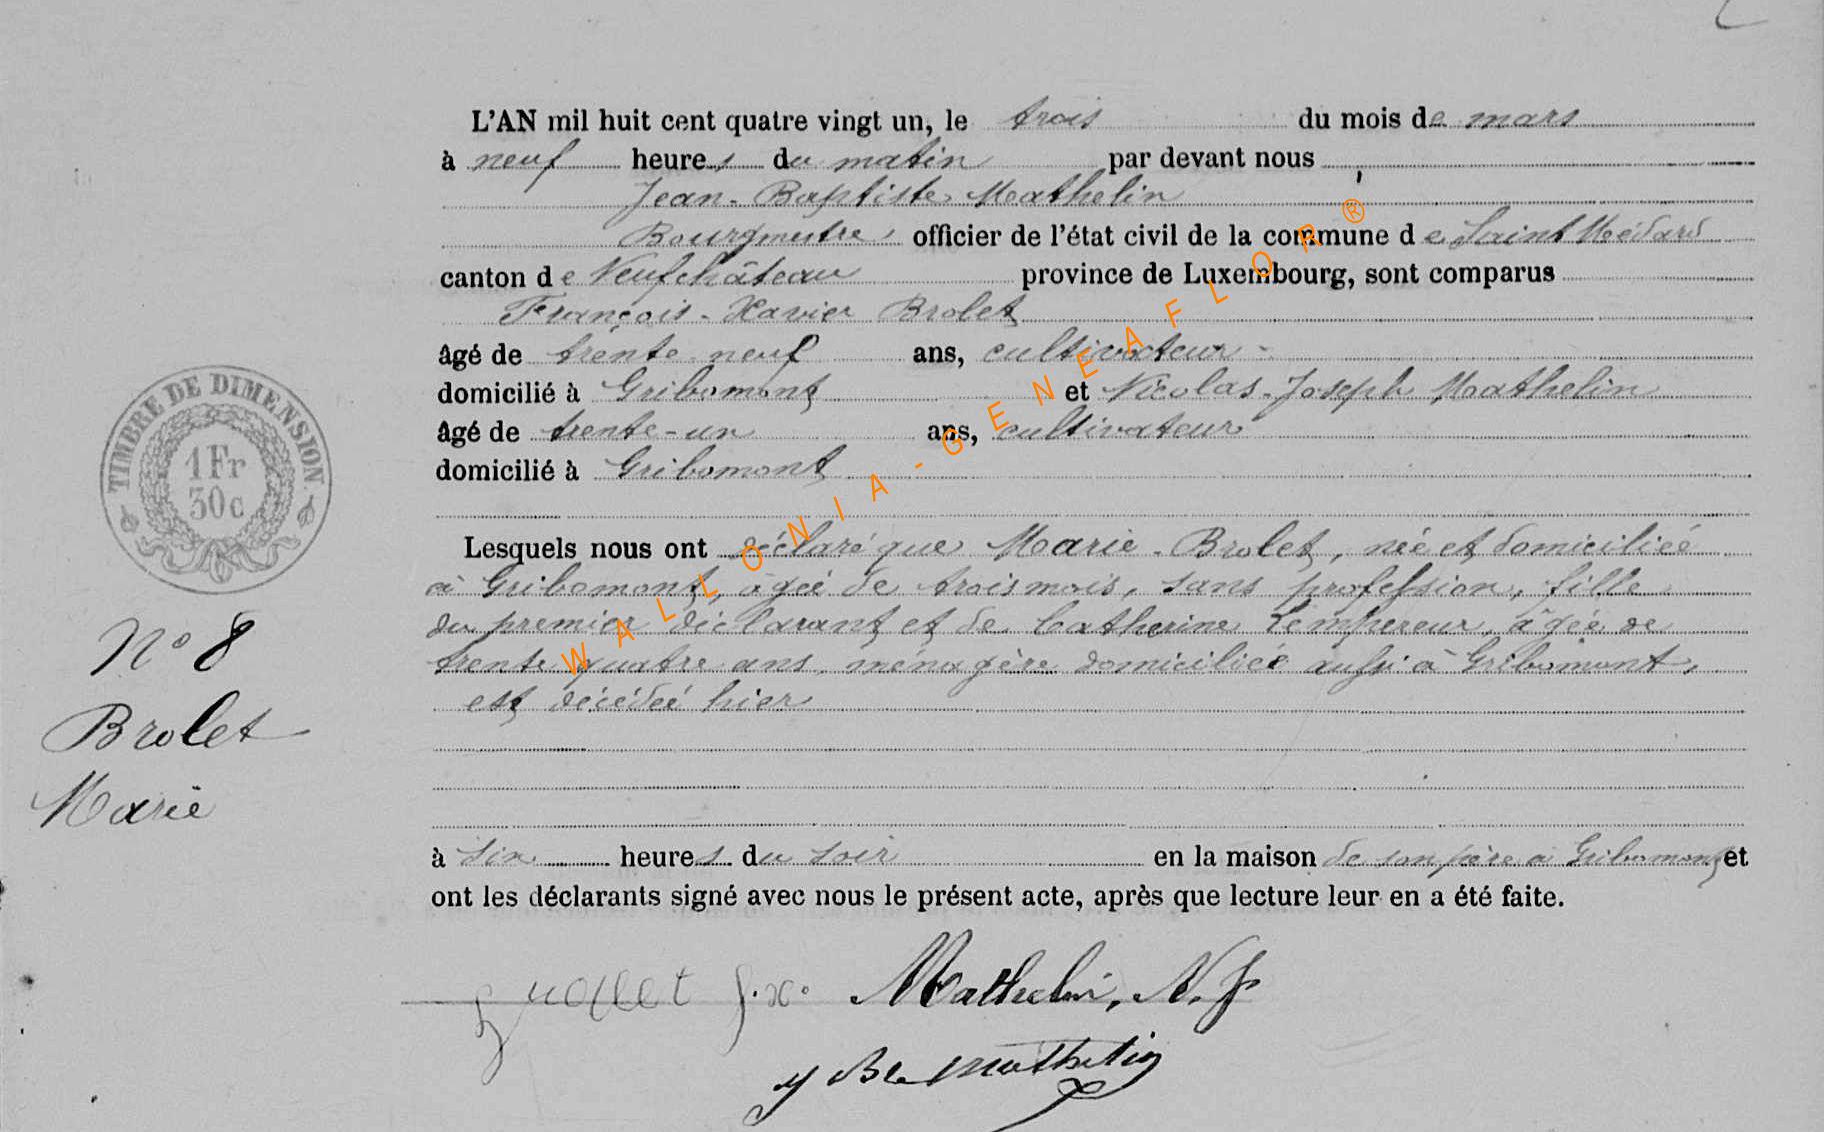 L'AN mil huit cent quatre vingt un, le trois du mois de mars
à neuf heures du matin par devant nous
Jean-Baptiste Mathelin
Bourgmestre, officier de l'état civil de la commune de Saint Médard
canton de Neufchâteau province de Luxembourg, sont comparus
François-Xavier Brolet
âgé de trente neuf ans, cultivateur -
domicilié à Gribomont et Nicolas-Joseph Mathelin
âgé de trente-un ans, cultivateur
domicilié à Gribomont
Lesquels nous ont déclaré que Marie-Brolet, née et domiciliée
à Gribomont, âgée de trois mois, sans profession, fille
du premier déclarant et de Catherine Lempereur, âgée de
trente quatre ans, ménagère domiciliée aussi à Gribomont,
est décédée hier
à six heures du soir en la maison de son père à Gribomont et
ont les déclarants signé avec nous le présent acte, après que lecture leur en a été faite.
TIMBRE DE DIMENSION.
1 Fr
30 c
N° 8
Brolet
Marie
f. x. Mathelin, N. J
J Bte Mathelin
WALLONIA-GENEAFLOR®